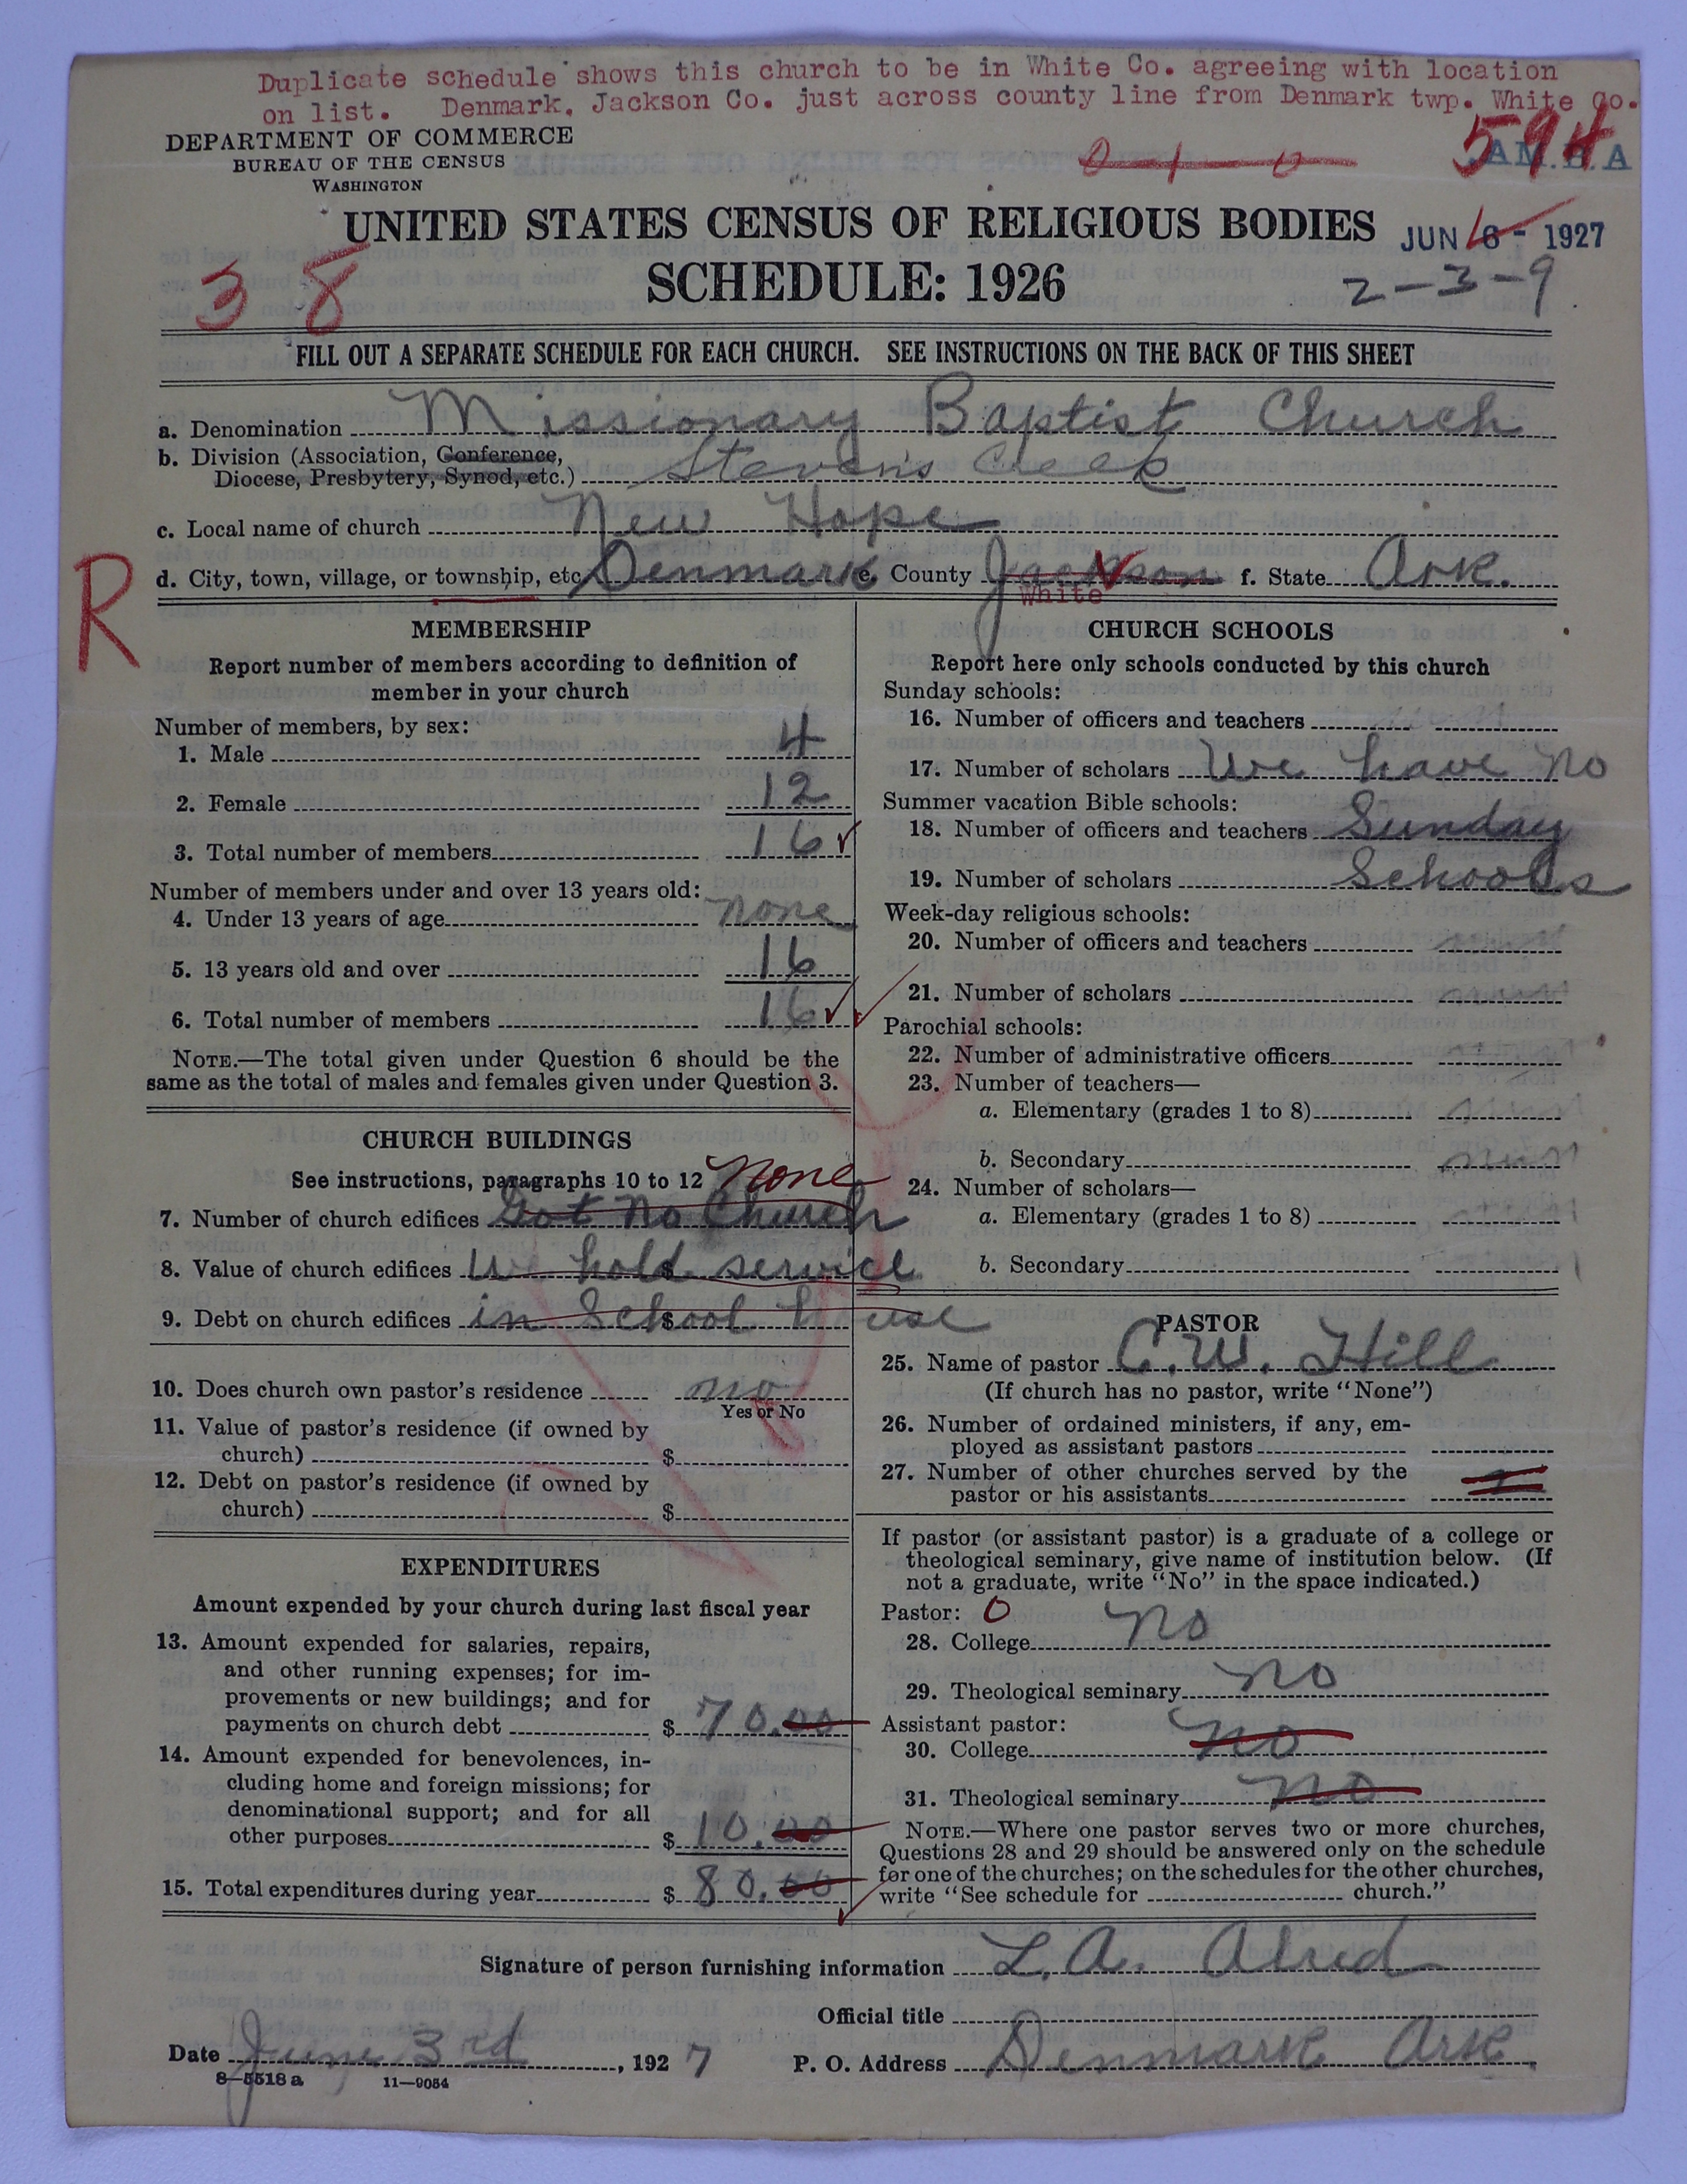 Duplicate schedule shows this church to be in White Co. agreeing with location
on list. Denmark, Jackson Co. just across county line from Denmark twp. White Co.
DEPARTMENT OF COMMERCE
BUREAU OF THE CENSUS
WASHINGTON
594
UNITED STATES CENSUS OF RELIGIOUS BODIES
JUN 6 - 1927
SCHEDULE: 1926
2-3-9
38
FILL OUT A SEPARATE SCHEDULE FOR EACH CHURCH. SEE INSTRUCTIONS ON THE BACK OF THIS SHEET
a. Denomination Missionary Baptist Church
b. Division (Association, Conference,
Diocese, Presbytery, Synod, etc.) Stevens Creek
c. Local name of church New Hope
R
d. City, town, village, or township, etc. Denmark e. County Jackson f. State Ark.
White
MEMBERSHIP
Report number of members according to definition of
member in your church
Number of members, by sex:
1. Male 4
2. Female 12
3. Total number of members 16
Number of members under and over 13 years old:
4. Under 13 years of age none
5. 13 years old and over 16
6. Total number of members 16
NOTE.—The total given under Question 6 should be the
same as the total of males and females given under Question 3.
CHURCH BUILDINGS
See instructions, paragraphs 10 to 12 None
7. Number of church edifices Got No Church
8. Value of church edifices $ We hold service
9. Debt on church edifices $ in School house
10. Does church own pastor's residence no
Yes or No
11. Value of pastor's residence (if owned by
church) $
12. Debt on pastor's residence (if owned by
church) $
EXPENDITURES
Amount expended by your church during last fiscal year
13. Amount expended for salaries, repairs,
and other running expenses; for im-
provements or new buildings; and for
payments on church debt $ 70.00
14. Amount expended for benevolences, in-
cluding home and foreign missions; for
denominational support; and for all
other purposes $ 10.00
15. Total expenditures during year $ 80.00
CHURCH SCHOOLS
Report here only schools conducted by this church
Sunday schools:
16. Number of officers and teachers
17. Number of scholars We have no
Summer vacation Bible schools:
18. Number of officers and teachers Sunday
19. Number of scholars Schools
Week-day religious schools:
20. Number of officers and teachers
21. Number of scholars
Parochial schools:
22. Number of administrative officers
23. Number of teachers—
a. Elementary (grades 1 to 8)
b. Secondary
24. Number of scholars—
a. Elementary (grades 1 to 8)
b. Secondary
PASTOR
25. Name of pastor C. W. Hill
(If church has no pastor, write "None")
26. Number of ordained ministers, if any, em-
ployed as assistant pastors
27. Number of other churches served by the
pastor or his assistants
If pastor (or assistant pastor) is a graduate of a college or
theological seminary, give name of institution below. (If
not a graduate, write "No" in the space indicated.)
Pastor: 0
28. College No
29. Theological seminary No
Assistant pastor:
30. College No
31. Theological seminary No
NOTE.—Where one pastor serves two or more churches,
Questions 28 and 29 should be answered only on the schedule
for one of the churches; on the schedules for the other churches,
write "See schedule for church."
Signature of person furnishing information L. A. Alred
Official title
Date June 3rd, 1927 P. O. Address Denmark Ark.
8—5518 a 11—9054